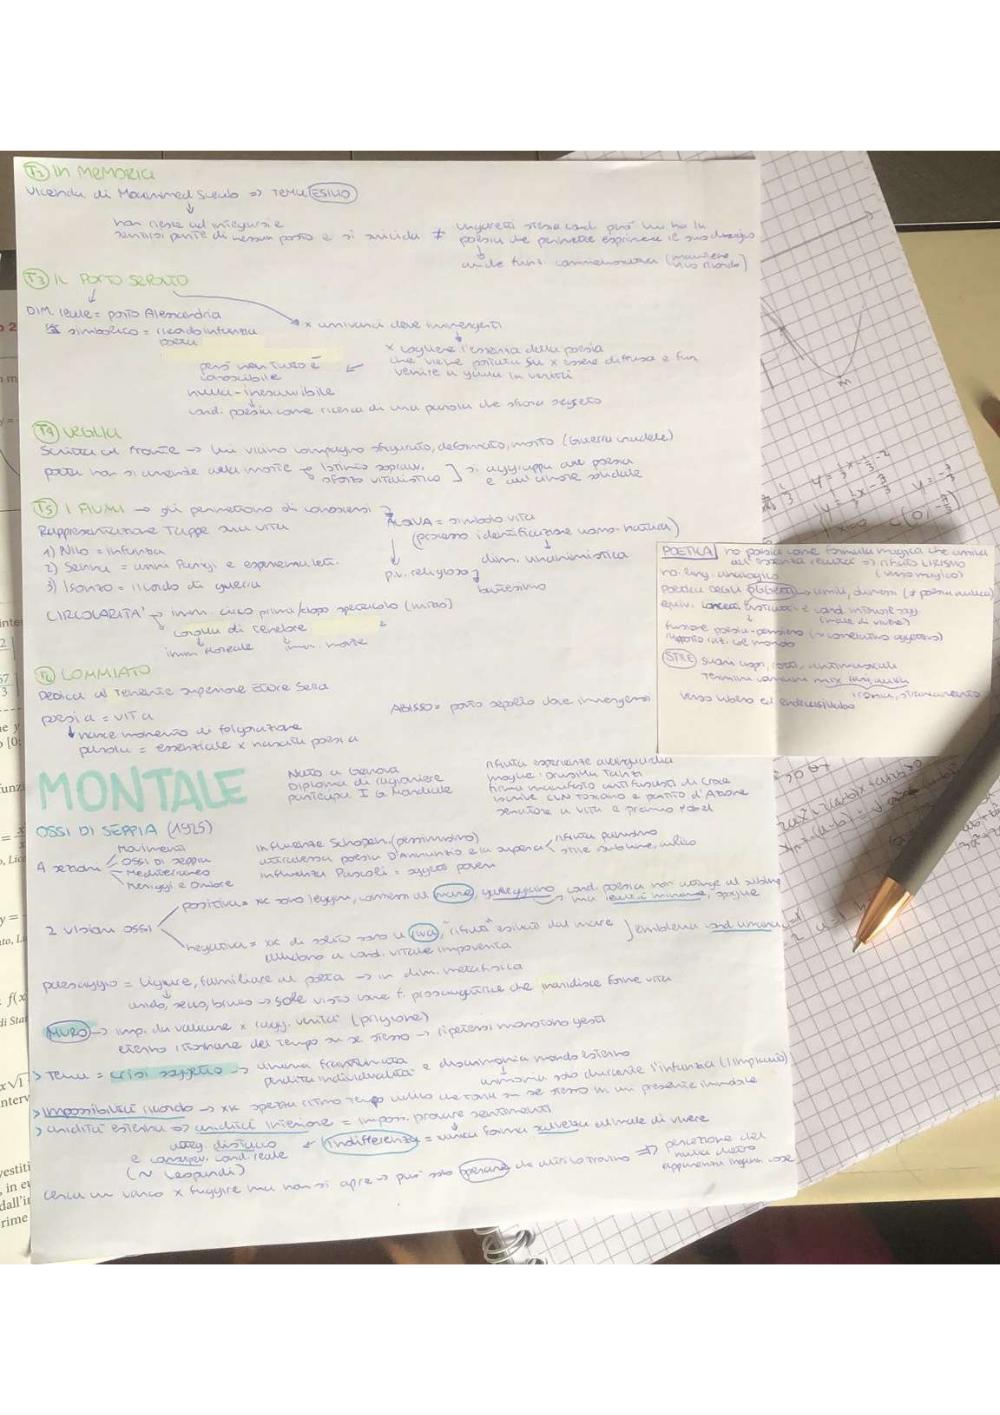 T2 IN MEMORIA
Vicenda di Moammed Sceab => TEMA ESILIO
non riesce ad integrarsi e
sentirsi parte di nessun posto e si suicida ≠ ungaretti stessa cond. però lui ha la
poesia che permette esprimere il suo disagio
anche funz. commemorativa (mantiene
vivo ricordo)
T3 IL PORTO SEPOLTO
DIM. reale = porto Alessandria
simbolico = ricordo infanzia
poeta
x arrivarci deve immergersi
x cogliere l'essenza della poesia
che viene portata su x essere diffusa e far
venire a galla la verità
però non tutto è
conoscibile
nulla-inesauribile
cond. poesia come ricerca di una parola che sfiora segreto
T4 VEGLIA
Scritta al fronte → lui vicino compagno sfigurato, deformato, morto (Guerra crudele)
poeta non si arrende alla morte → istinto soprav.
sforzo vitalistico
si aggrappa alla poesia
e all'amore solidale
T5 I FIUMI → gli permettono di conoscersi
Rappresentazione Tappe sua vita
1) Nilo = infanzia
2) Senna = anni Parigi e esperienza lett.
3) Isonzo = ricordo di guerra
ACQUA = simbolo vita
(processo identificazione uomo-natura)
dim. unanimistica
p.v. religioso
battesimo
CIRCOLARITA' → imm. circo prima/dopo spettacolo (inizio)
corolla di tenebre
imm. floreale
imm. morte
COMMIATO
Dedica al tenente superiore Ettore Serra
poesia = VITA
nasce momento di folgorazione
parola = essenziale x nascita poesia
ABISSO = porto sepolto dove immergersi
POETICA no poesia come formula magica che arriva
all'essenza realtà => rifiuto LIRISMO
no ling. analogico
(verso magico)
Poetica degli OGGETTI → umili, dimessi (≠ poesia aulica)
equiv. concetti astratti e cond. interiore sogg.
(male di vivere)
funzione poesia-pensiero (≈ correlativo oggettivo)
rapporto int. col mondo
STILE suoni aspri, rotti, antimusicali
Termini comuni mix ling. aulica
ironia, straniamento
Verso libero ed endecasillabo
MONTALE
Nato a Genova
Diploma di ragioniere
partecipa I G Mondiale
rifiuta esperienze avanguardia
moglie: Drusilla Tanzi
firma manifesto antifascisti di Croce
iscrive CLN toscano e partito d'Azione
senatore a vita e premio Nobel
OSSI DI SEPPIA (1925)
4 sezioni
Movimenti
OSSI di seppia
Mediterraneo
Meriggi e Ombre
influenze Schopen. (pessimismo)
attraversa poesia D'Annunzio e la supera
rifiuta panismo
stile sublime, aulico
influenza Pascoli = oggetti poveri
2 visioni OSSI
positiva = xk sono leggeri, connessi al mare, galleggiano, cond. poesia non attinge al sublime
ma realtà minima, spoglie
negativa = xk di solito sono a riva, rifiuti esiliati dal mare
alludono a cond. vitale impoverita
} emblema cond umana
paesaggio = Ligure, familiare al poeta → in dim. metafisica
arido, secco, brullo → sole visto come f. prosciugatrice che inaridisce forme vita
MURO → imp. da valicare x ragg. verità (prigione)
eterno ritornare del tempo su se stesso → ripetersi monotono gesti
> Tema = crisi soggetto → anima frantumata
perdita individualità
e disarmonia mondo esterno
armonia solo durante l'infanzia
> Impossibilità ricordo → xk spezza ritmo tempo
in un presente immobile
> aridità esterna => aridità interiore = imposs. provare sentimenti
atteg. distacco
e consapev. cond. reale
(~ Leopardi)
Indifferenza = unica forma salvezza al male di vivere
cerca un varco x fuggire ma non si apre → può solo sperare che altri lo trovino => percezione del
nulla dietro